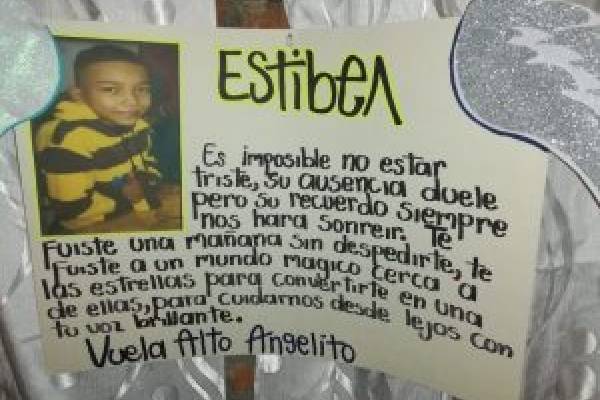 EstibeN
Es imposible no estar
triste, su ausencia duele
pero su recuerdo siempre
nos hara sonreir. Te
Fuiste una mañana sin despedirte, te
Fuiste a un mundo magico cerca a
las estrellas para convertirte en una
de ellas, para cuidarnos desde lejos con
tu voz brillante.
Vuela Alto Angelito